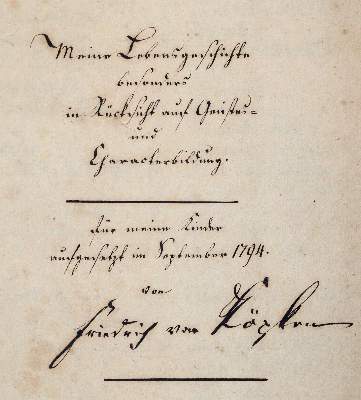 Meine Lebensgeschichte
besonders
in Rücksicht auf Geistes-
und
Characterbildung.
für meine Kinder
aufgesetzt im September 1794.
von
Friedrich von Köpken